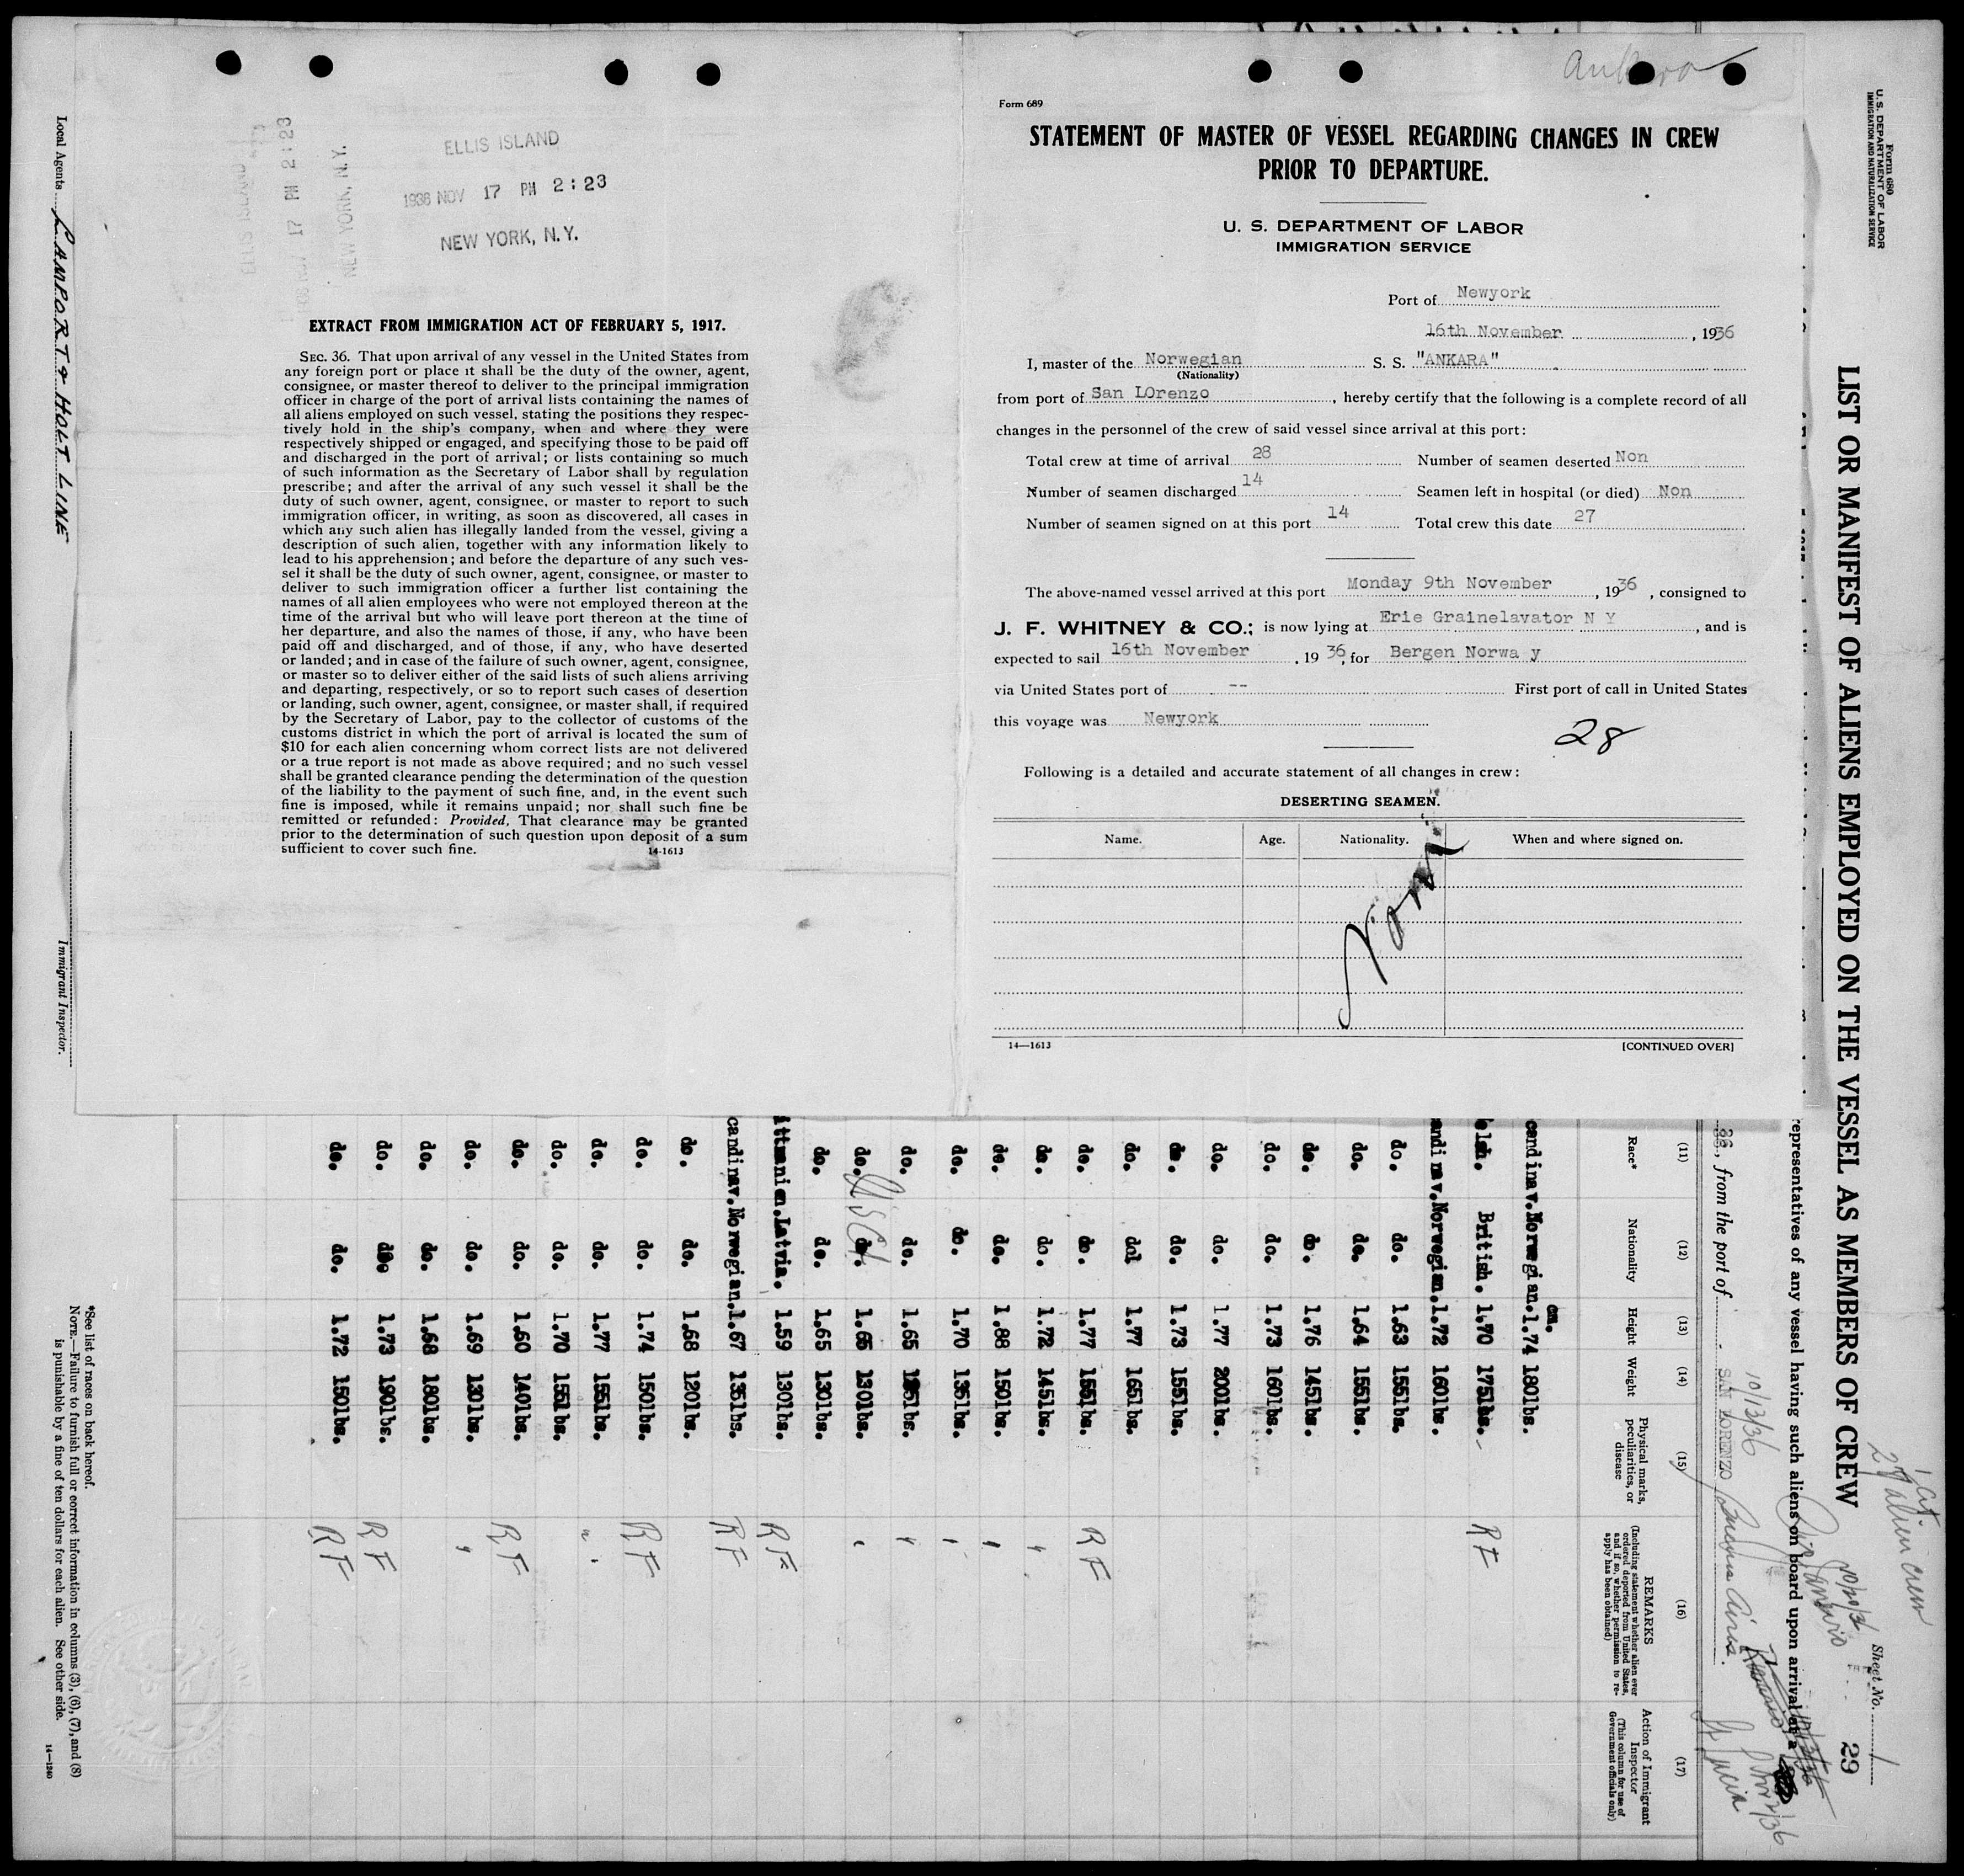 Ankara
Form 689
STATEMENT OF MASTER OF VESSEL REGARDING CHANGES IN CREW
PRIOR TO DEPARTURE.
U. S. DEPARTMENT OF LABOR
IMMIGRATION SERVICE
Port of Newyork
16th November, 1936
I, master of the Norwegian S. S. "ANKARA"
(Nationality)
from port of San LOrenzo, hereby certify that the following is a complete record of all
changes in the personnel of the crew of said vessel since arrival at this port:
Total crew at time of arrival 28 Number of seamen deserted Non
Number of seamen discharged 14 Seamen left in hospital (or died) Non
Number of seamen signed on at this port 14 Total crew this date 27
The above-named vessel arrived at this port Monday 9th November, 1936, consigned to
J. F. WHITNEY & CO.; is now lying at Erie Grainelavator N Y, and is
expected to sail 16th November, 1936, for Bergen Norwa y
via United States port of -- First port of call in United States
this voyage was Newyork
28
Following is a detailed and accurate statement of all changes in crew:
DESERTING SEAMEN.
Name. Age. Nationality. When and where signed on.
14—1613
[CONTINUED OVER]
ELLIS ISLAND
1936 NOV 17 PM 2:23
NEW YORK, N.Y.
ELLIS ISLAND
17 PM 2:23
NEW YORK, N.Y.
EXTRACT FROM IMMIGRATION ACT OF FEBRUARY 5, 1917.
SEC. 36. That upon arrival of any vessel in the United States from
any foreign port or place it shall be the duty of the owner, agent,
consignee, or master thereof to deliver to the principal immigration
officer in charge of the port of arrival lists containing the names of
all aliens employed on such vessel, stating the positions they respec-
tively hold in the ship's company, when and where they were
respectively shipped or engaged, and specifying those to be paid off
and discharged in the port of arrival; or lists containing so much
of such information as the Secretary of Labor shall by regulation
prescribe; and after the arrival of any such vessel it shall be the
duty of such owner, agent, consignee, or master to report to such
immigration officer, in writing, as soon as discovered, all cases in
which any such alien has illegally landed from the vessel, giving a
description of such alien, together with any information likely to
lead to his apprehension; and before the departure of any such ves-
sel it shall be the duty of such owner, agent, consignee, or master to
deliver to such immigration officer a further list containing the
names of all alien employees who were not employed thereon at the
time of the arrival but who will leave port thereon at the time of
her departure, and also the names of those, if any, who have been
paid off and discharged, and of those, if any, who have deserted
or landed; and in case of the failure of such owner, agent, consignee,
or master so to deliver either of the said lists of such aliens arriving
and departing, respectively, or so to report such cases of desertion
or landing, such owner, agent, consignee, or master shall, if required
by the Secretary of Labor, pay to the collector of customs of the
customs district in which the port of arrival is located the sum of
$10 for each alien concerning whom correct lists are not delivered
or a true report is not made as above required; and no such vessel
shall be granted clearance pending the determination of the question
of the liability to the payment of such fine, and, in the event such
fine is imposed, while it remains unpaid; nor shall such fine be
remitted or refunded: Provided, That clearance may be granted
prior to the determination of such question upon deposit of a sum
sufficient to cover such fine.
14-1613
Form 680
U. S. DEPARTMENT OF LABOR
IMMIGRATION AND NATURALIZATION SERVICE
1 cit
27 alien crew
Sheet No. 1
LIST OR MANIFEST OF ALIENS EMPLOYED ON THE VESSEL AS MEMBERS OF CREW
29
10/20/36
representatives of any vessel having such aliens on board upon arrival at a
36, from the port of SAN LORENZO Buenos Aires.
10/13/36
St Lucia Nov 2/36
(11) (12) (13) (14) (15) (16) (17)
Race* Nationality Height Weight Physical marks, peculiarities, or disease
REMARKS
(Including statement whether alien ever ordered deported from United States, and if so, whether permission to reapply has been obtained)
Action of Immigrant Inspector
(This column for use of Government officials only)
cm.
candinav. Norwegian. 1.74 180lbs.
elsh. British. 1.70 175lbs. RF
andinav. Norwegian. 1.72 160lbs.
do. do. 1.63 155lbs.
do. do. 1.64 155lbs.
do. do. 1.76 145lbs.
do. do. 1.73 160lbs.
do. do. 1.77 200lbs.
do. do. 1.73 155lbs.
do. dol 1.77 165lbs.
do. do. 1.77 155lbs. RF
do. do. 1.72 145lbs. "
do. do. 1.88 150lbs. "
do. do. 1.70 135lbs. "
do. do. 1.65 lbs. "
do. do. US Cit 1.65 130lbs. "
do. do. 1.65 130lbs.
ittmanien. Latvia. 1.59 130lbs. RF
candinav. Norwegian. 1.67 135lbs. RF
do. do. 1.68 120lbs.
do. do. 1.74 150lbs. RF
do. do. 1.77 155lbs. "
do. do. 1.70 155lbs. "
do. do. 1.60 140lbs. RF
do. do. 1.69 130lbs. "
do. do. 1.68 180lbs.
do. do. 1.73 190lbs. RF
do. do. 1.72 150lbs. RF
*See list of races on back hereof.
NOTE.—Failure to furnish full or correct information in columns (3), (6), (7), and (8)
is punishable by a fine of ten dollars for each alien. See other side.
14—1240
Local Agents LAMPORT & HOLT LINE
Immigrant Inspector.